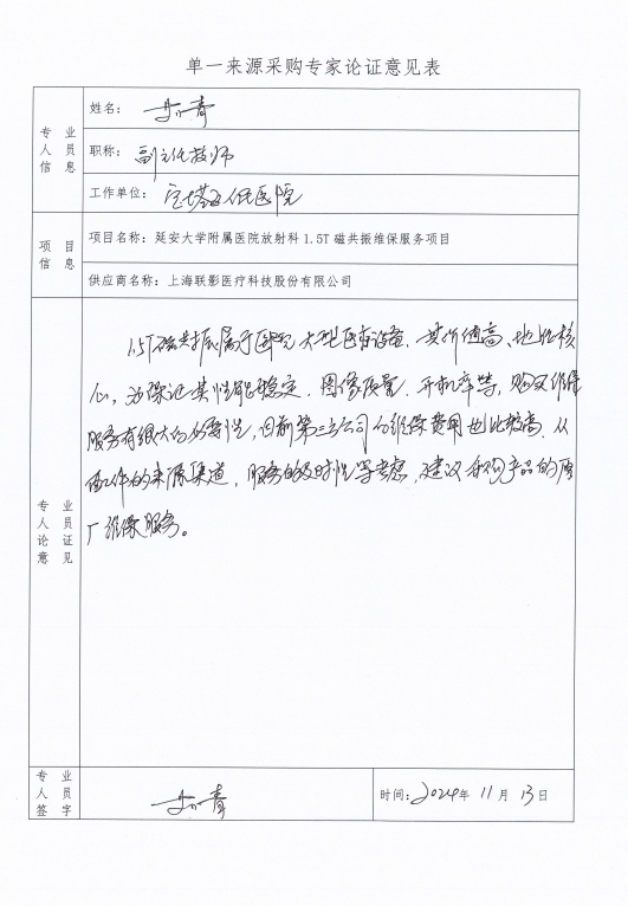 单一来源采购专家论证意见表
专业人员信息
姓名：
职称：副主任技师
工作单位：宝塔区人民医院
项目信息
项目名称：延安大学附属医院放射科1.5T磁共振维保服务项目
供应商名称：上海联影医疗科技股份有限公司
专业人员论证意见
1.5T磁共振属于医院大型医疗设备，其价值高、地位核
心，为保证其性能稳定、图像质量、开机率等，购买维保
服务有很大的必要性，目前第三方公司的维保费用也比较高，从
配件的来源渠道，服务的及时性等考虑，建议采购产品的原
厂维保服务。
专业人员签字
时间：2024年11月13日